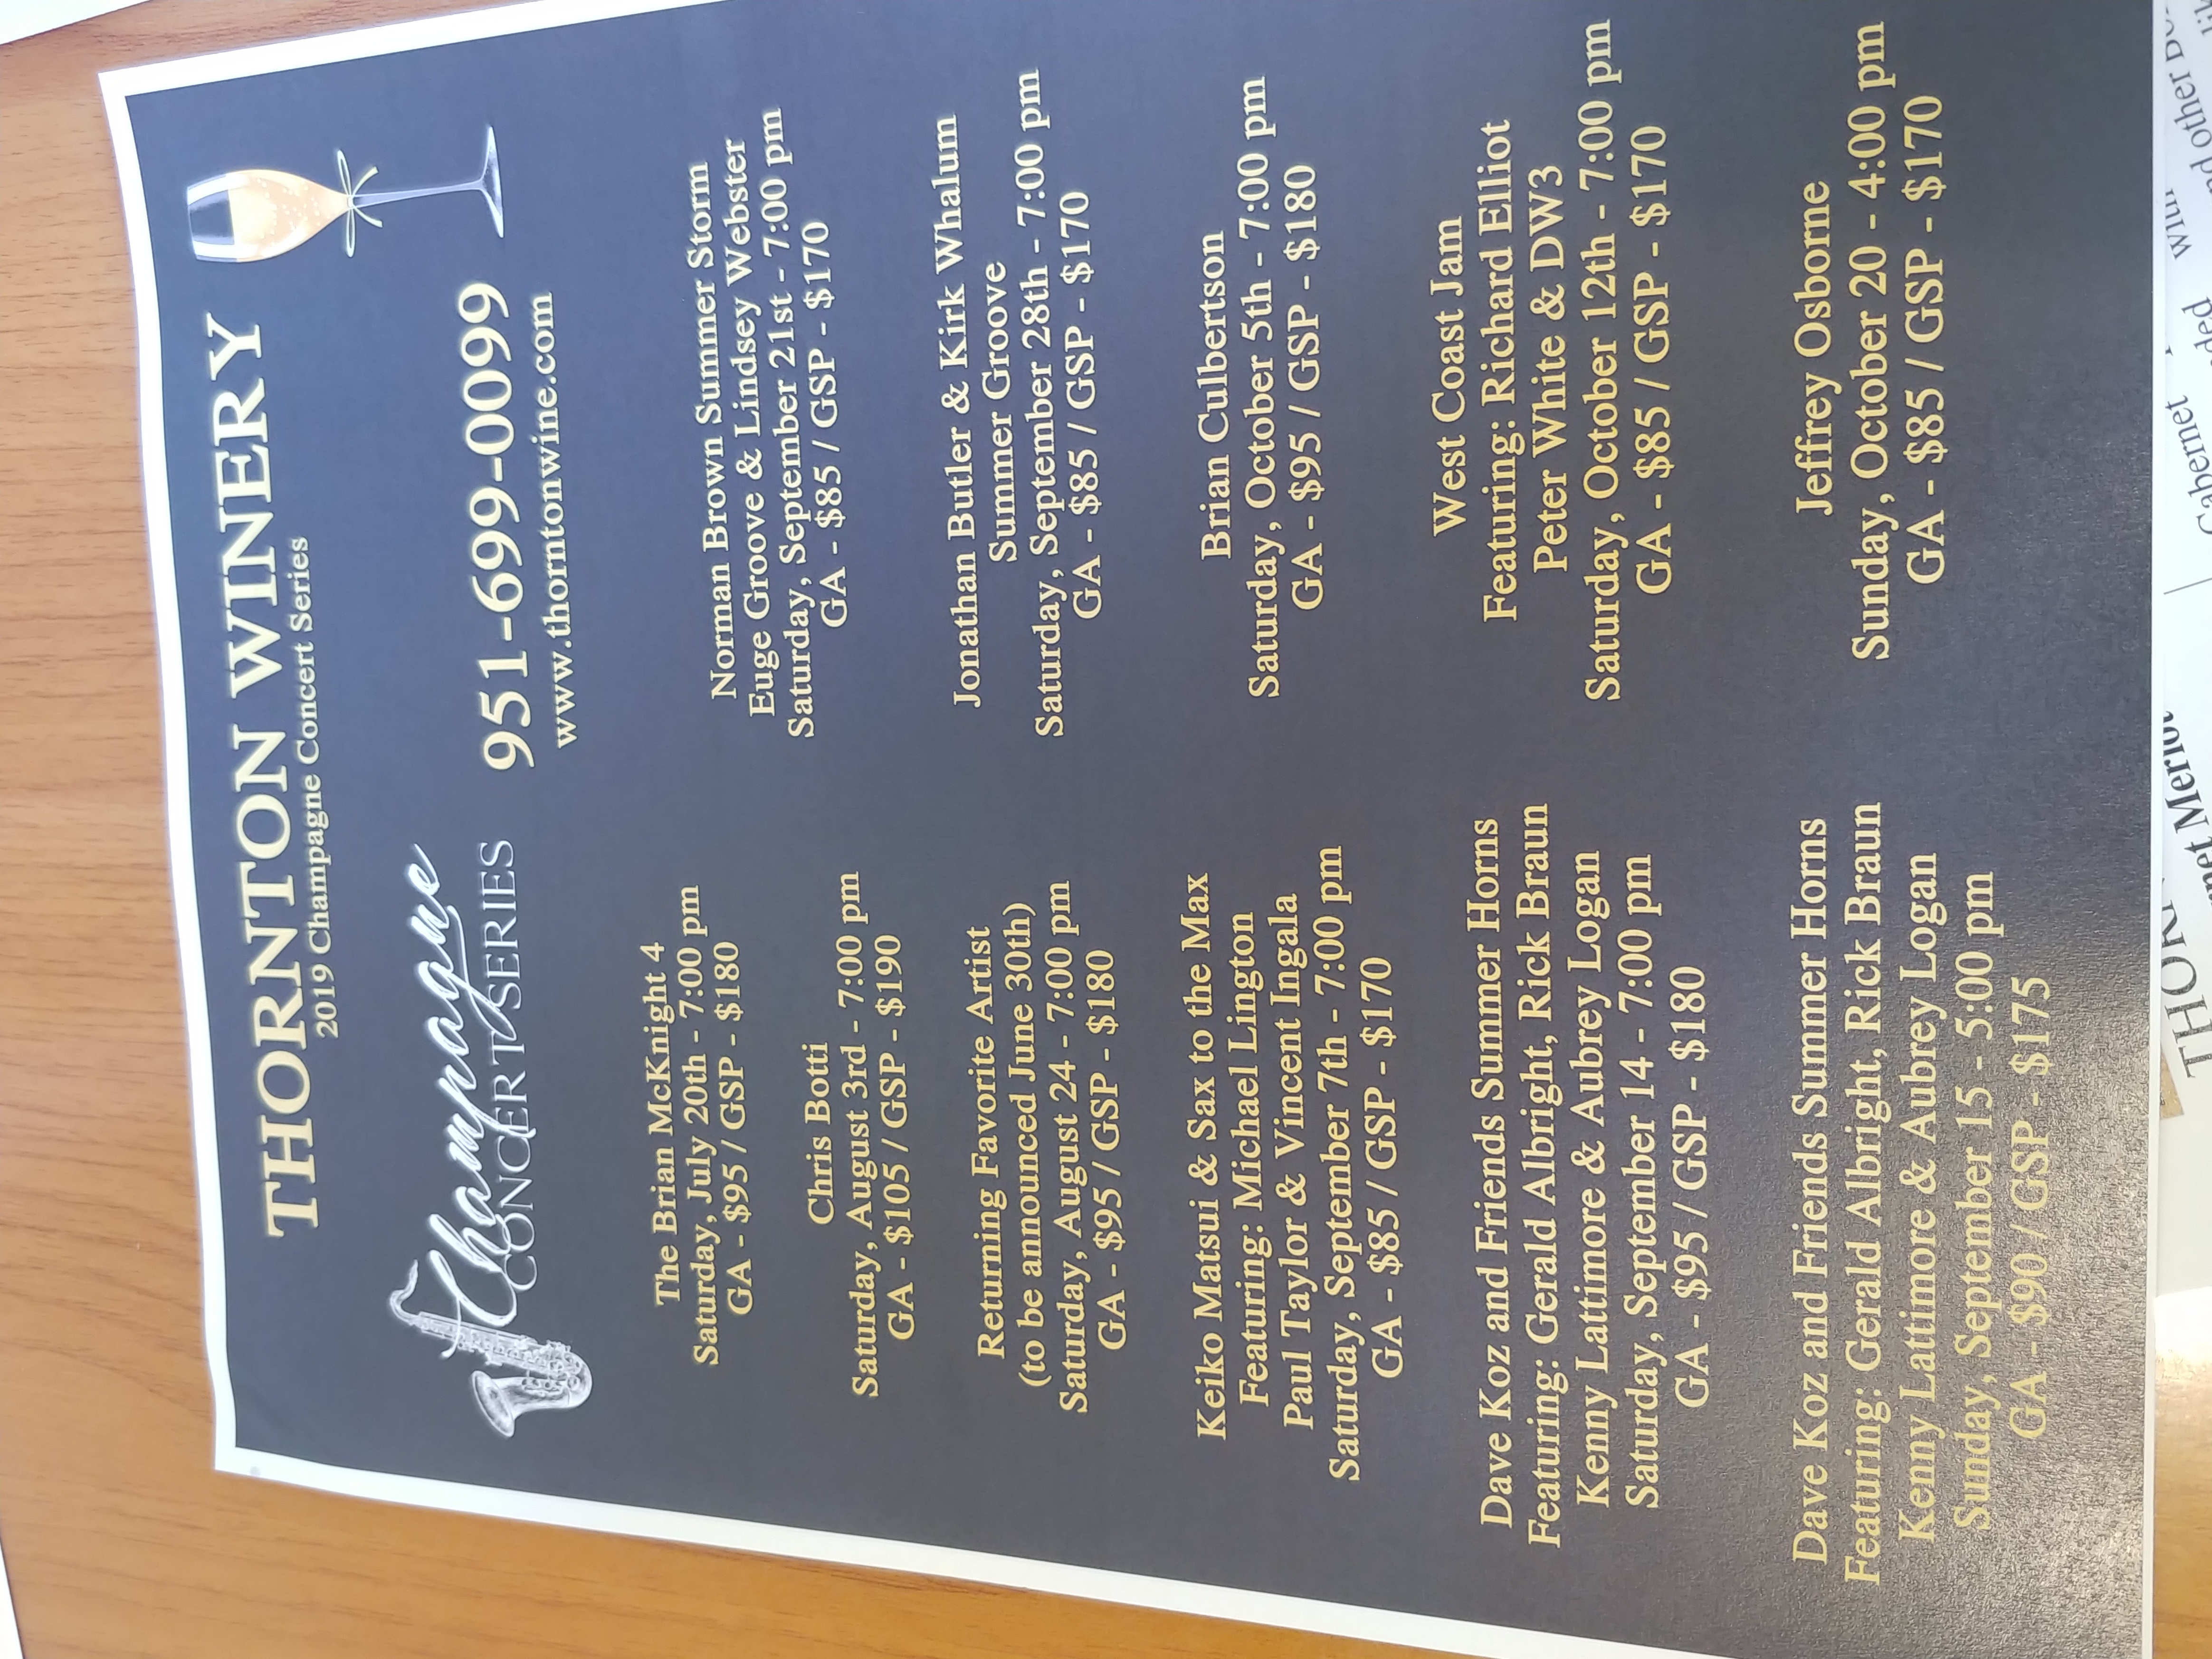 THORNTON WINERY
2019 Champagne Concert Series
Champagne
CONCERT SERIES
951-699-0099
www.thorntonwine.com
The Brian McKnight 4
Saturday, July 20th - 7:00 pm
GA - $95 / GSP - $180
Chris Botti
Saturday, August 3rd - 7:00 pm
GA - $105 / GSP - $190
Returning Favorite Artist
(to be announced June 30th)
Saturday, August 24 - 7:00 pm
GA - $95 / GSP - $180
Keiko Matsui & Sax to the Max
Featuring: Michael Lington
Paul Taylor & Vincent Ingala
Saturday, September 7th - 7:00 pm
GA - $85 / GSP - $170
Dave Koz and Friends Summer Horns
Featuring: Gerald Albright, Rick Braun
Kenny Lattimore & Aubrey Logan
Saturday, September 14 - 7:00 pm
GA - $95 / GSP - $180
Dave Koz and Friends Summer Horns
Featuring: Gerald Albright, Rick Braun
Kenny Lattimore & Aubrey Logan
Sunday, September 15 - 5:00 pm
GA - $90 / GSP - $175
Norman Brown Summer Storm
Euge Groove & Lindsey Webster
Saturday, September 21st - 7:00 pm
GA - $85 / GSP - $170
Jonathan Butler & Kirk Whalum
Summer Groove
Saturday, September 28th - 7:00 pm
GA - $85 / GSP - $170
Brian Culbertson
Saturday, October 5th - 7:00 pm
GA - $95 / GSP - $180
West Coast Jam
Featuring: Richard Elliot
Peter White & DW3
Saturday, October 12th - 7:00 pm
GA - $85 / GSP - $170
Jeffrey Osborne
Sunday, October 20 - 4:00 pm
GA - $85 / GSP - $170
Merlot
other